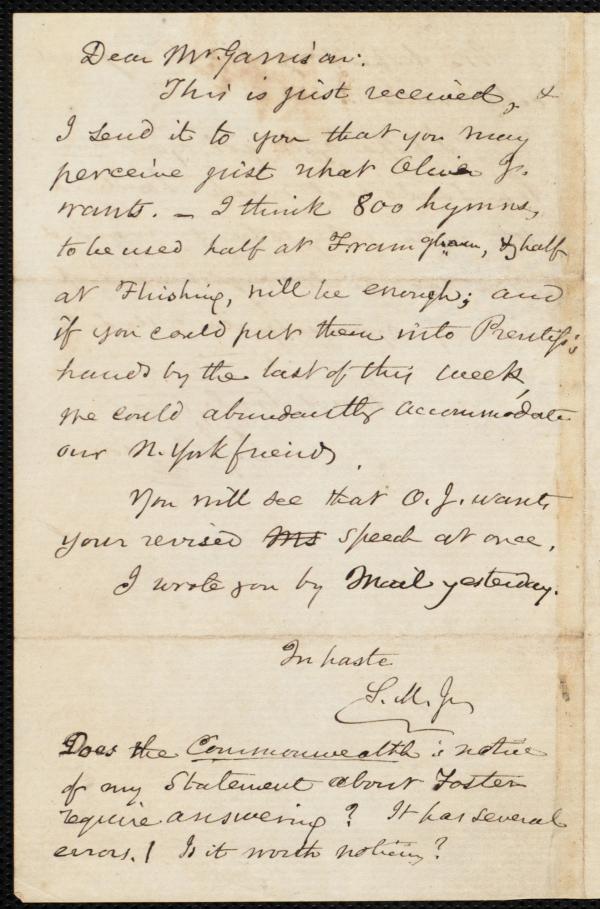 Dear Mr. Garrison:
This is just received, &
I send it to you that you may
perceive just what Oliver J.
wants. – I think 800 hymns,
to be used half at Framgham, & half
at Flushing, will be enough; and
if you could put them into Prentiss's
hands by the last of this week,
we could abundantly accommodate
our N. York friends.
You will see that O. J. wants
your revised Ms speech at once.
I wrote you by Mail yesterday.
In haste
S. M. Jr
Does the Commonwealth's notice
of my Statement about Foster
require answering? It has several
errors.! Is it worth noticing?